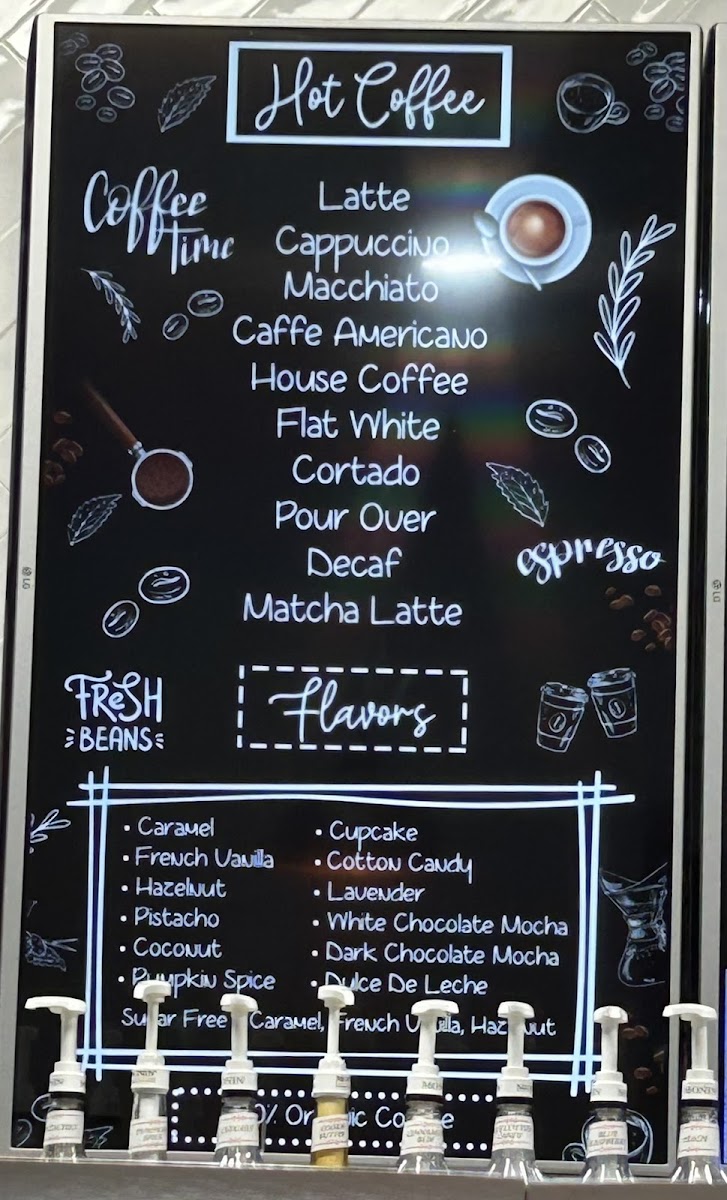 Hot Coffee
Coffee
Time
Latte
Cappuccino
Macchiato
Caffe Americano
House Coffee
Flat White
Cortado
Pour Over
Decaf
Matcha Latte
espresso
FReSH
BEANS
Flavors
• Caramel
• French Vanilla
• Hazelnut
• Pistacho
• Coconut
• Pumpkin Spice
• Cupcake
• Cotton Candy
• Lavender
• White Chocolate Mocha
• Dark Chocolate Mocha
• Dulce De Leche
Sugar Free Caramel, French Vanilla, Hazelnut
Organic Coffee
LG
LG